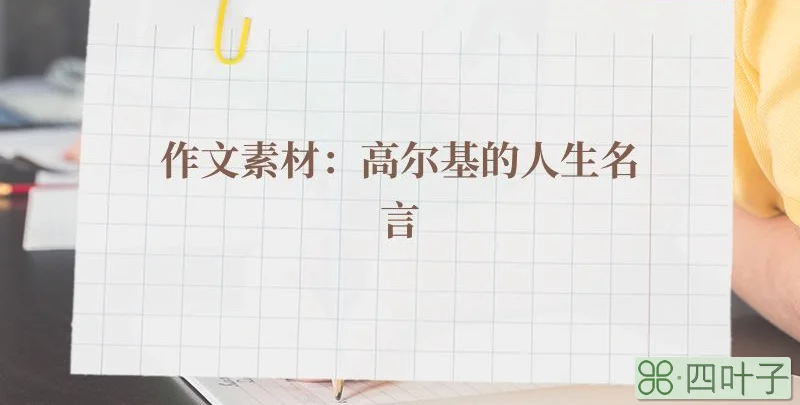 作文素材：高尔基的人生名
言
四叶子